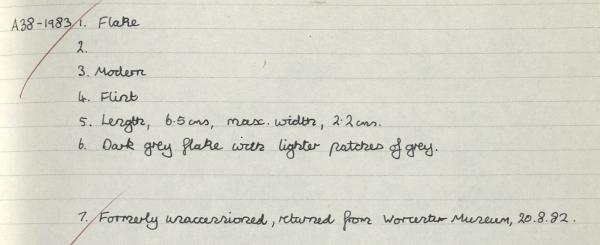 A38-1983 1. Flake
2.
3. Modern
4. Flint
5. Length, 6.5cms, max. width, 2.2cms.
6. Dark grey flake with lighter patches of grey.
7. Formerly unaccessioned, returned from Worcester Museum, 20.8.82.